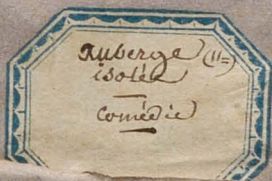 auberge (11=)
isolée
comédie